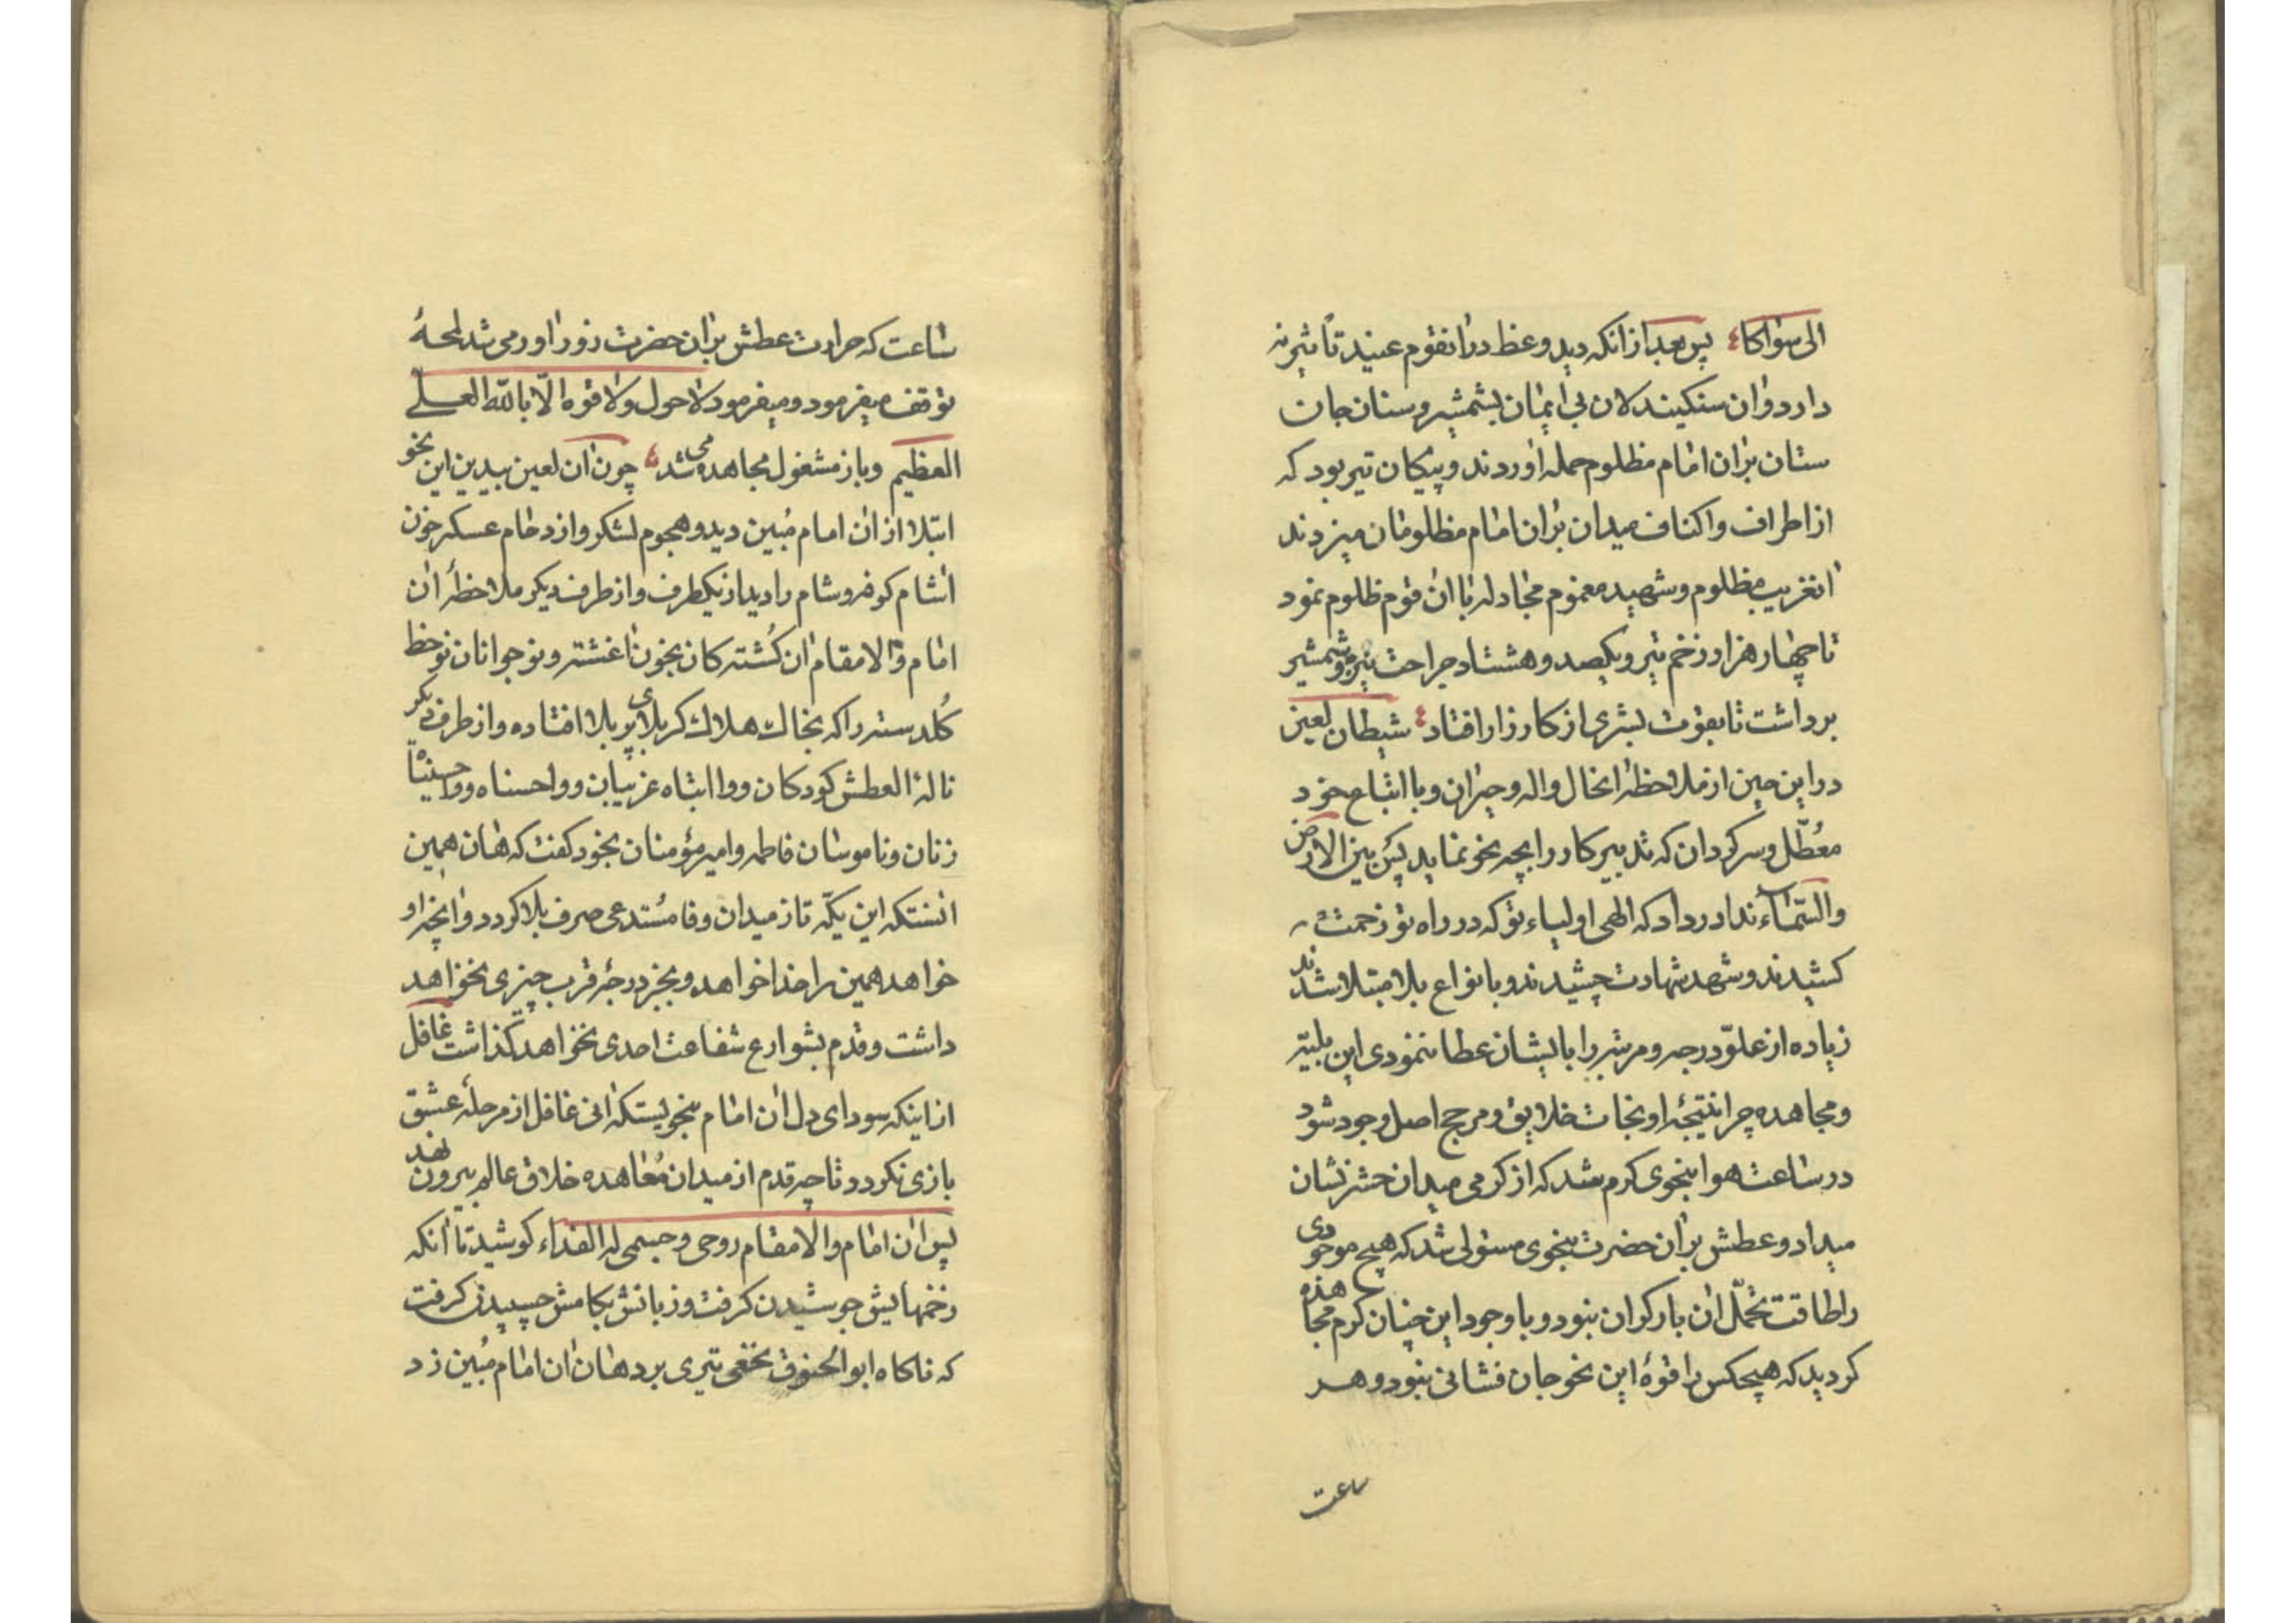 الی سواکا؛ پس بعد از انکه دید وعظ در انقوم عنید تأثیر نه
دارد و ان سنکیندلان بی ایمان بشمشیر و سنان جان
ستان بران امام مظلوم حمله اوردند و پیکان تیر بود که
از اطراف و اکناف میدان بران امام مظلومان میزدند
انغریب مظلوم و شهید مغموم مجادله با ان قوم ظلوم نمود
تا چهار هزار زخم تیر و یکصد و هشتاد جراحت نیزه و شمشیر
برداشت تا بقوت بشری از کارزار افتاد؛ شیطان لعین
در این حین از ملاحظه انحال واله و حیران و با اتباع خود
معطّل و سرکردان که تدبیر کار را بچه نحو نماید پس بین الارض
والسّماء ندا در داد که الهی اولیاء تو که در راه تو زحمت
کشیدند و شهد شهادت چشیدند و بانواع بلا مبتلا شدند
زیاده از علوّ درجه و مرتبه را بایشان عطا ننمودی این بلیّه
و مجاهده چرا نتیجهٔ او نجات خلایق و مرجح اصل وجود شود
در ساعت هوا بنحوی کرم شد که از کرمی میدان حشر نشان
میداد و عطش بران حضرت بنحوی مستولی شد که هیچ موجودی
را طاقت تحمّل ان بار کران نبود و با وجود این چنان کرم مجاهده
کردید که هیچکس را قوهٔ این نحو جان فشانی نبود و هر
ساعت
ساعت که حرارت عطش بران حضرت زور اور می شد لمحهٔ
توقف میفرمود و میفرمود لا حول ولا قوه الّا بالله العلے
العظیم و باز مشغول مجاهده می شد؛ چون ان لعین بیدین این نحو
ابتلا از ان امام مُبین دید و هجوم لشکر و ازدحام عسکر خون
اشام کوفه و شام را دید از یکطرف و از طرف دیکر ملاحظهٔ ان
امام والا مقام ان کُشته کان بخون اغشته و نوجوانان نوخط
کُلدسته را که بخاک هلاک کربلای پر بلا افتاده و از طرف دیکر
نالهٔ العطش کودکان و وا ابتاه غریبان و واحسناه و واحسیناه
زنان و ناموسان فاطمه و امیر مؤمنان بخود کفت که هان همین
انستکه این یکّه تاز میدان وفا مُستدعی صرف بلا کردد و انچه او
خواهد همین را خدا خواهد و بجز درجهٔ قرب چیزی نخواهد
داشت و قدم بشوارع شفاعت احدی نخواهد کذاشت غافل
از اینکه سودای دل ان امام بنحویستکه انی غافل از مرحلهٔ عشق
بازی نکردد و تا چه قدم از میدان مُعاهده خلاق عالم بیرون نهد
پس ان امام والا مقام روحی و جسمی له الفداء کوشید تا انکه
زخمهایش جوشیدن کرفت و زبانش بکامش چسبیدن کرفت
که ناکاه ابو الحنوق نخعی تیری بر دهان ان امام مُبین زد